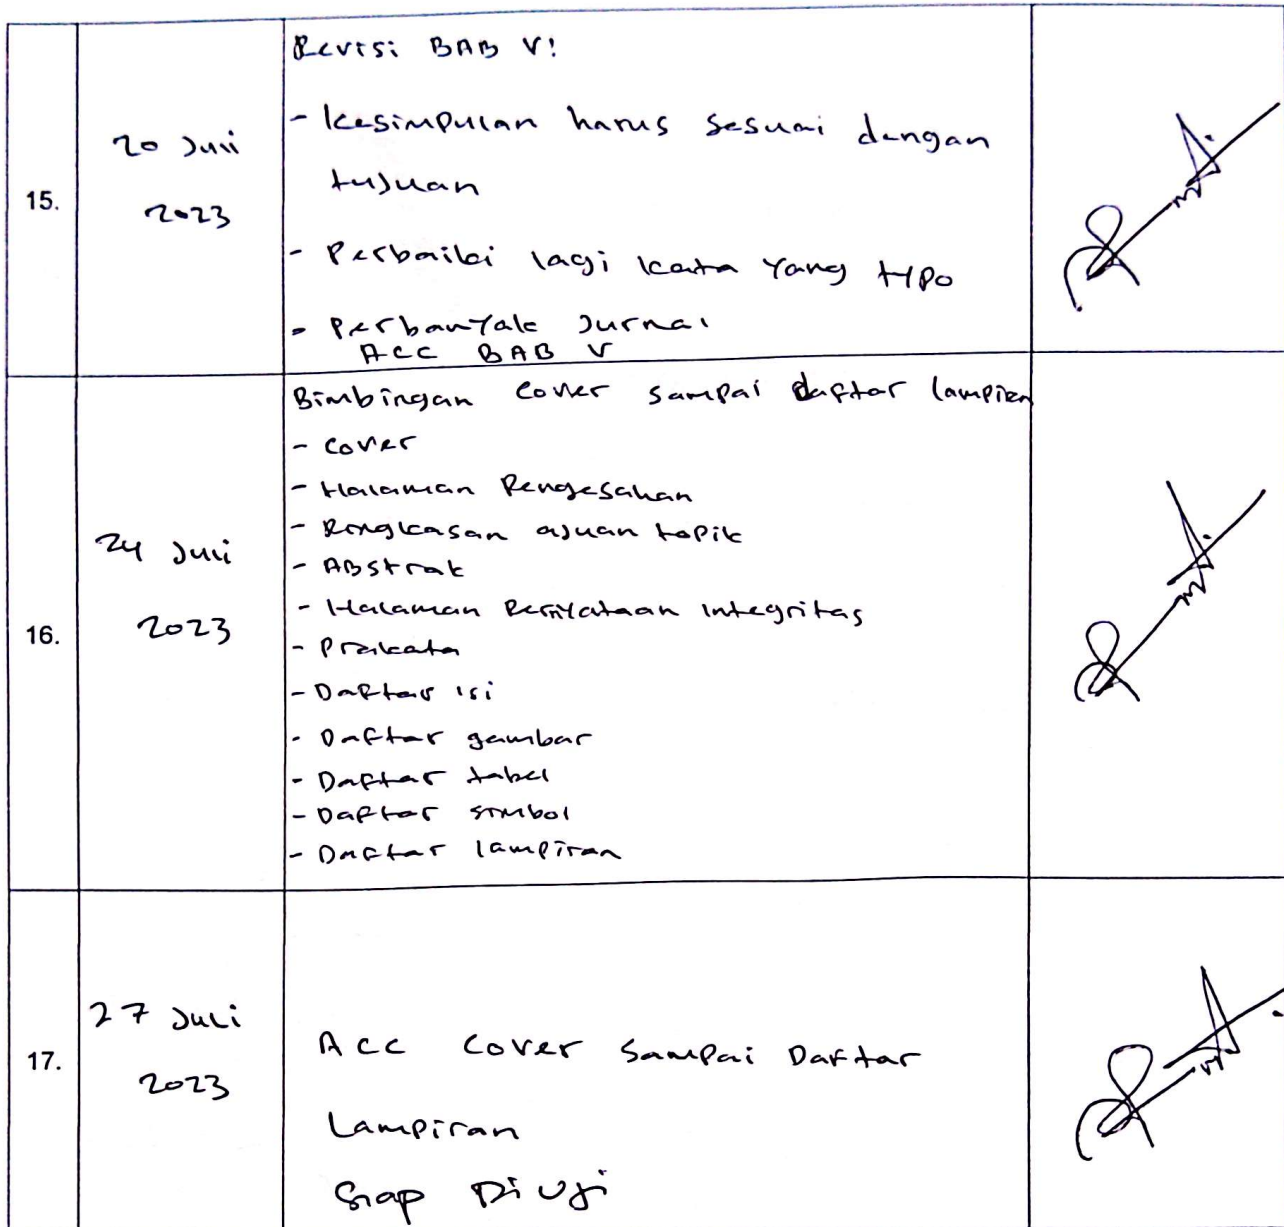 15.
20 Juli
2023
Revisi BAB V!
- Kesimpulan harus sesuai dengan
tujuan
- Perbaiki lagi kata yang typo
- Perbanyak Jurnal
ACC BAB V
16.
24 Juli
2023
Bimbingan cover sampai daftar lampiran
- cover
- Halaman Pengesahan
- Ringkasan ajuan topik
- ABstrak
- Halaman Pernyataan Integritas
- Prakata
- Daftar isi
- Daftar gambar
- Daftar tabel
- Daftar simbol
- Daftar lampiran
17.
27 Juli
2023
ACC Cover Sampai Daftar
Lampiran
Siap Di Uji